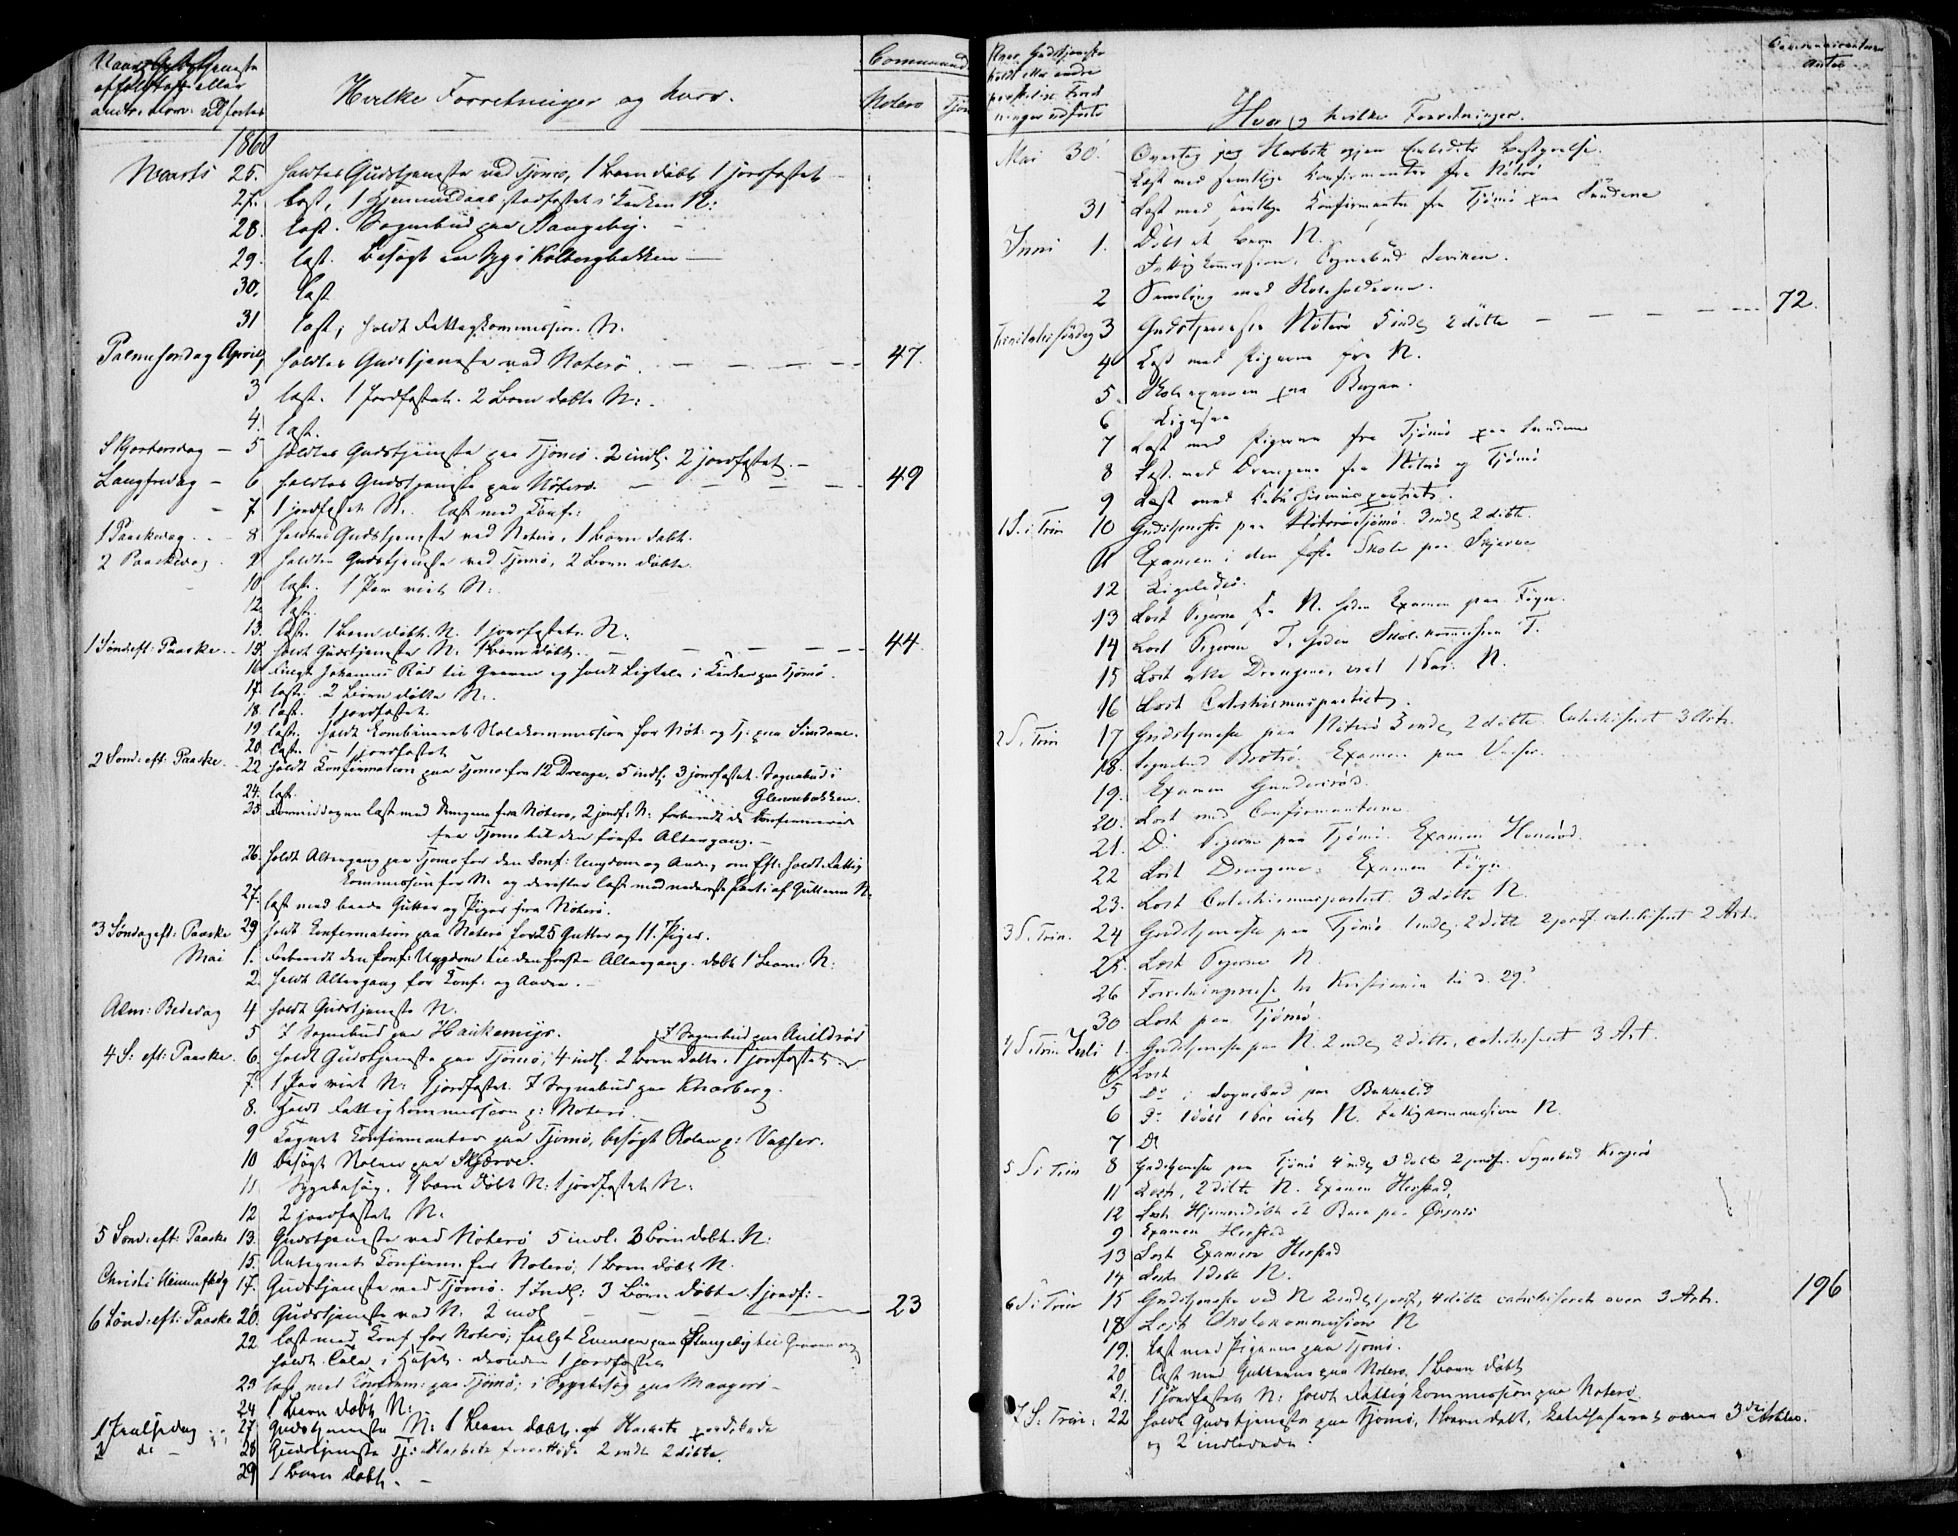 Hvilke Forretninger og hvor.
Nøterø
1860
Marts 25. holdtes Gudstjeneste ved Tjømø, 1 Barn døbt 1 jordfæstet
27. læst, 1 Hjemmedaab stadfæstet i Kirken N:
28. læst. Sognebud paa Stangeby.
29. læst. Besøgt en Syg i Kolbergbakken
30. læst
31 læst, holdt Fattigkommission N.
Palmesøndag April holdtes Gudstjeneste ved Nøterø 47.
3 læst. 1 Jordfæstet. 2 Børn døbte N:
4. læst.
Skjærtorsdag 5 holdtes Gudstjeneste paa Tjømø. 2 indl. 2 jordfæstet.
Langfredag 6 holdtes Gudstjeneste paa Nøterø 49
7. 1 jordfæstet N. læst med Konf:
1 Paaskedag 8 holdtes Gudstjeneste ved Nøterø, 1 Barn døbt.
2 Paaskedag 9 holdtes Gudstjeneste ved Tjømø, 2 Børn døbte
10 læst. 1 Par viet N:
12. læst.
13. læst. 1 Barn døbt. N. 1 jordfæstet. N:
1 Sønd: eft: Paaske 15. holdt Gudstjeneste N: 1 Barn døbt. 44
16 fulgt Johannes Rød til Graven og holdt Ligtale i Kirken paa Tjømø.
17. læst. 2 Børn døbte N:
18. læst. 1 jordfæstet.
19 læst. holdt kombineret Skolekommission for Nøt: og Tj: paa Sundene.
20. læst. 1 jordfæstet
2 Sønd: eft: Paaske 22 holdt Konfirmation paa Tjømø for 12 Drenge, 5 indl. 3 jordfæstet. Sognebud i
24. læst. Glennebakken.
25 Formiddagen læst med Drengene fra Nøterø, 2 jordf: N: forberedt de Konfirmerede
fra Tjømø til den første Altergang.
26. holdt Altergang paa Tjømø for den Konf: Ungdom og Andre, om Eft: holdt Fattig
kommission for N. og derefter læst med nederste Parti af Gutterne N.
27. læst med baade Gutter og Piger fra Nøterø.
3 Søndag eft: Paaske 29 holdt Konfirmation paa Nøterø for 25 Gutter og 11 Piger.
Mai 1. Forberedt den Konf: Ungdom til den første Altergang. døbt 1 Barn N:
2. holdt Altergang for Konf: og Andre.
Alm: Bededag 4 holdt Gudstjeneste N.
5 I Sognebud paa I Sognebud paa
4 S: eft: Paaske. 6. holdt Gudstjeneste paa Tjømø, 4 indl. 2 Børn døbte. 1 jordfæstet
7. 1 Par viet N: 1 jordfæstet. I Sognebud paa Knarberg.
8. Holdt Fattigkommission p: Nøterø.
9 Tegnet Konfirmanter paa Tjømø, besøgt Skolen p: Vasser.
10 besøgt Skolen paa Skjærve.
11 Sygebesøg. 1 Barn døbt N: 1 jordfæstet N:
12 2 jordfæstet N:
5 Sønd: eft: Paaske 13. Gudstjeneste ved Nøterø 5 indl. 3 Børn døbt. N:
15. Antegnet Konfirm. for Nøterø, 1 Barn døbt N.
Christi Himmelfdg 17. Gudstjeneste ved Tjømø. 1 Indl: 3 Børn døbte 1 jordf:
6 Sønd: eft: Paaske 20. Gudstjeneste ved N: 2 indl 23
22 læst med Konf for Nøterø, fulgt Evensen paa Stangeby til Graven og
holdt Tale i Huset. desuden 1 jordfæstet
23 læst med Konfirm: paa Tjømø; i Sygebesøg paa Mangerø
24 1 Barn døbt N:
1 Pintsedag 27 Gudstjeneste N: 1 Barn døbt. prædikede
2 de 28 Gudstjeneste Tj: 2 indl 2 døbte.
29 1 Barn døbt.
Hvor og hvilke Forretninger.
Mai 30. Overtog jeg igjen Embedets Bestyrelse.
Læst med samtlige Konfirmanter fra Nøterø
31 Læst med samtlige Konfirmanter fra Tjømø paa Sundene
Juni 1. Døbt et Barn N.
Fattigkommission. Sognebud
2 Samling med Skoleholderne. 72.
Trinitatis søndag 3 Gudstjeneste Nøterø 5 indl 2 døbte
4 Læst med Pigerne fra N.
5 Skoleexamen paa Bergan.
6 Ligesaa
7 Læst med Pigerne fra Tjømø paa Sundene
8 Læst med Drengene fra Nøterø og Tjømø
9 Læst med Catechismuspartiet.
1 S. i Trin 10 Gudstjeneste paa Tjømø. 3 indl 2 døbt.
11 Examen i den faste Skole paa Skjerve
12 Ligeledes.
13 Læst Pigerne fr N. siden Examen paa Føyn.
14 Læst Pigerne T. siden Skolekommission T.
15 Læst Drengene, viet 1 Par. N.
16 Læst Catechismuspartiet.
2 S. Trin 17 Gudstjeneste paa Nøterø 3 indl 2 døbte Catechiseret 3 Art.
18. Sognebud Brøtsø. Examen paa Vasser.
19. Examen Gunderserød.
20. Læst med Confirmanterne
21. Do Pigerne paa Tjømø. Examen
22 Læst Drengene. Examen Føyn
23. Læst Catechismuspartiet 3 døbte N.
3 S. Trin. 24 Gudstjeneste paa Tjømø 1 indl. 2 døbte 2 jordf. catechiseret 2 Art.
25. Læst Pigerne N.
26 Forretningsreise til Kristiania til d. 29.
30 Læst paa Tjømø.
4 S Trin Juli 1. Gudstjeneste paa N. 2 indl 2 døbte, catechiseret 3 Art.
4 Læst
5 Do i Sognebud paa
6 Do 1 døbt 1 Par viet N. Fattigkommission N.
7 Do
5 S i Trin 8 Gudstjeneste paa Tjømø 4 indl 3 døbte 2 jordf. Sognebud
11 Læst, 2 døbte N. Examen Herstad.
12 Læst. Hjemmedøbt et Barn paa
9 Examen Herstad
13 Læst Examen Herstad
14 Læst 1 døbt N.
6 S i Trin 15 Gudstjeneste ved N 2 indl 1 jordf, 4 døbte catechiseret over 3 Art. 196
18 Læst Skolekommission N
19. Læst med Pigerne paa Tjømø.
20 Læst med Gutterne paa Nøterø, 1 Barn døbt
21. 1 jordfæstet N: holdt Fattigkommission paa Nøterø.
7 S. Trin: 22 holdt Gudstjeneste paa Tjømø, 1 Barn døbt, katechiseret over 3die Artikel.
og 2 indledede.